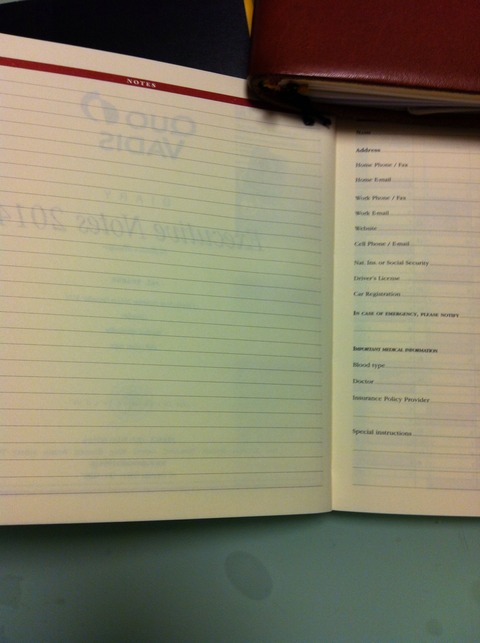 NOTES
QUO
VADIS
DIARY
Executive Notes 2014
Name
Address
Home Phone / Fax
Home E-mail
Work Phone / Fax
Work E-mail
Website
Cell Phone / E-mail
Nat. Ins. or Social Security
Driver's License
Car Registration
IN CASE OF EMERGENCY, PLEASE NOTIFY
IMPORTANT MEDICAL INFORMATION
Blood type
Doctor
Insurance Policy Provider
Special instructions